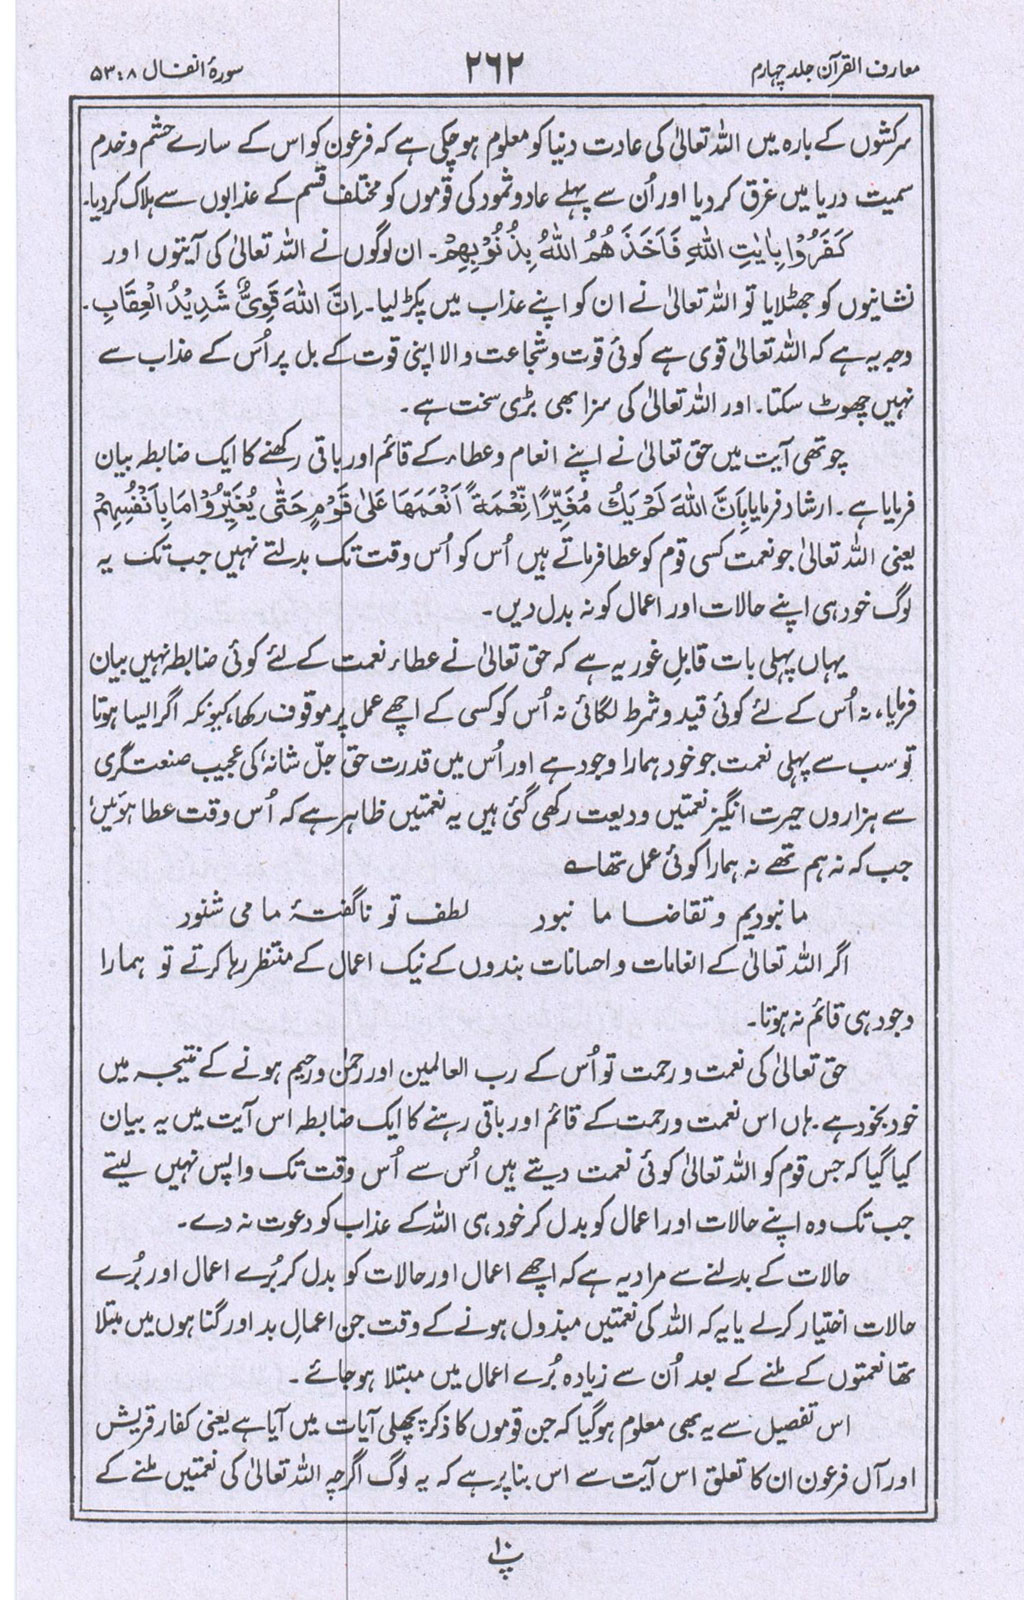 معارف القرآن جلد چہارم ۲۶۲ سورۂ انفال ۸ : ۵۳
سرکشوں کے بارہ میں اللہ تعالیٰ کی عادت دنیا کو معلوم ہوچکی ہے کہ فرعون کو اس کے سارے حشم و خدم
سمیت دریا میں غرق کردیا اور اُن سے پہلے عاد و ثمود کی قوموں کو مختلف قسم کے عذابوں سے ہلاک کردیا۔
كَفَرُوْا بِاٰيٰتِ اللّٰهِ فَاَخَذَهُمُ اللّٰهُ بِذُنُوْبِهِمْ۔ ان لوگوں نے اللہ تعالیٰ کی آیتوں اور
نشانیوں کو جھٹلایا تو اللہ تعالیٰ نے ان کو اپنے عذاب میں پکڑ لیا۔ اِنَّ اللّٰهَ قَوِيٌّ شَدِيْدُ الْعِقَابِ۔
وجہ یہ ہے کہ اللہ تعالیٰ قوی ہے کوئی قوت و شجاعت والا اپنی قوت کے بل پر اُس کے عذاب سے
نہیں چھوٹ سکتا۔ اور اللہ تعالیٰ کی سزا بھی بڑی سخت ہے۔
چوتھی آیت میں حق تعالیٰ نے اپنے انعام و عطاء کے قائم اور باقی رکھنے کا ایک ضابطہ بیان
فرمایا ہے۔ ارشاد فرمایا بِاَنَّ اللّٰهَ لَمْ يَكُ مُغَيِّرًا نِّعْمَةً اَنْعَمَهَا عَلٰى قَوْمٍ حَتّٰى يُغَيِّرُوْا مَا بِاَنْفُسِهِمْ
یعنی اللہ تعالیٰ جو نعمت کسی قوم کو عطا فرماتے ہیں اُس کو اُس وقت تک بدلتے نہیں جب تک یہ
لوگ خود ہی اپنے حالات اور اعمال کو نہ بدل دیں۔
یہاں پہلی بات قابلِ غور یہ ہے کہ حق تعالیٰ نے عطاء نعمت کے لئے کوئی ضابطہ نہیں بیان
فرمایا، نہ اُس کے لئے کوئی قید و شرط لگائی نہ اُس کو کسی کے اچھے عمل پر موقوف رکھا، کیونکہ اگر ایسا ہوتا
تو سب سے پہلی نعمت جو خود ہمارا وجود ہے اور اُس میں قدرت حق جلّ شانہٗ کی عجیب صنعت گری
سے ہزاروں حیرت انگیز نعمتیں ودیعت رکھی گئی ہیں یہ نعمتیں ظاہر ہے کہ اُس وقت عطا ہوئیں
جب کہ نہ ہم تھے نہ ہمارا کوئی عمل تھا ؎
ما نبودیم و تقاضا ما نبود لطف تو ناگفتۂ ما می شنود
اگر اللہ تعالیٰ کے انعامات و احسانات بندوں کے نیک اعمال کے منتظر رہا کرتے تو ہمارا
وجود ہی قائم نہ ہوتا۔
حق تعالیٰ کی نعمت و رحمت تو اُس کے رب العالمین اور رحمٰن و رحیم ہونے کے نتیجہ میں
خود بخود ہے۔ ہاں اس نعمت و رحمت کے قائم اور باقی رہنے کا ایک ضابطہ اس آیت میں یہ بیان
کیا گیا کہ جس قوم کو اللہ تعالیٰ کوئی نعمت دیتے ہیں اُس سے اُس وقت تک واپس نہیں لیتے
جب تک وہ اپنے حالات اور اعمال کو بدل کر خود ہی اللہ کے عذاب کو دعوت نہ دے۔
حالات کے بدلنے سے مراد یہ ہے کہ اچھے اعمال اور حالات کو بدل کر بُرے اعمال اور بُرے
حالات اختیار کرلے یا یہ کہ اللہ کی نعمتیں مبذول ہونے کے وقت جن اعمالِ بد اور گناہوں میں مبتلا
تھا نعمتوں کے ملنے کے بعد اُن سے زیادہ بُرے اعمال میں مبتلا ہوجائے۔
اس تفصیل سے یہ بھی معلوم ہوگیا کہ جن قوموں کا ذکر پچھلی آیات میں آیا ہے یعنی کفار قریش
اور آل فرعون ان کا تعلق اس آیت سے اس بنا پر ہے کہ یہ لوگ اگرچہ اللہ تعالیٰ کی نعمتیں ملنے کے
پ ۱۰